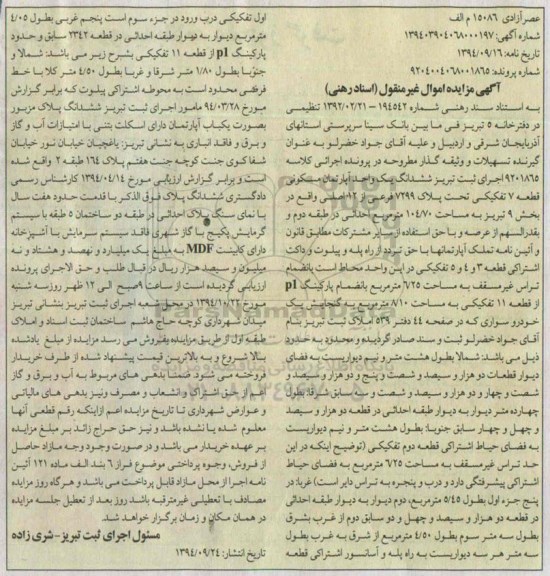 عصرآزادی ۱۵۰۸۶ م الف
شماره آگهی: ۱۳۹۴۰۳۹۰۴۰۶۸۰۰۰۱۹۷
تاریخ نامه: ۱۳۹۴/۰۹/۱۶
شماره پرونده: ۹۲۰۴۰۰۴۰۶۸۰۰۱۸۶۵
آگهی مزایده اموال غیرمنقول (اسناد رهنی)
به استناد سند رهنی شماره ۱۹۴۵۴۲ – ۱۳۹۲/۰۲/۲۱ تنظیمی
در دفترخانه ۵ تبریز فی ما بین بانک سینا سرپرستی استانهای
آذربایجان شرقی و اردبیل و علیه آقای جواد خضرلو به عنوان
گیرنده تسهیلات و وثیقه گذار مطروحه در پرونده اجرائی کلاسه
۹۲۰۱۸۶۵ اجرای ثبت تبریز ششدانگ یک واحد آپارتمان مسکونی
قطعه ۷ تفکیکی تحت پلاک ۷۲۹۹ فرعی از ۱۲ اصلی واقع در
بخش ۹ تبریز به مساحت ۱۰۴/۷۰ مترمربع احداثی در طبقه دوم و
بقدرالسهم از عرصه و با حق استفاده از سایر مشترکات مطابق قانون
و آئین نامه تملک آپارتمانها با حق تردد از راه پله و پیلوت و داکت
اشتراکی قطعه ۳ و ۴ و ۵ تفکیکی در این واحد محاط است بانضمام
تراس غیرمسقف به مساحت ۶/۲۵ مترمربع بانضمام پارکینگ p1
از قطعه ۱۱ تفکیکی به مساحت ۸/۱۰ مترمربع به گنجایش یک
خودرو سواری که در صفحه ۴۴ دفتر ۵۳۹ املاک ثبت تبریز بنام
آقای جواد خضرلو ثبت و سند صادر گردیده و محدود به حدود
ذیل می باشد: شمالا بطول هشت متر و نیم دیواریست به فضای
دیوار قطعات دو هزار و سیصد و شصت و پنج و دو هزار و سیصد و
شصت و چهار و دو هزار و سیصد و شصت و سه سابق شرقا بطول
چهارده متر دیوار به دیوار طبقه احداثی در قطعه دو هزار و سیصد
و چهل و چهار سابق جنوبا: بطول هشت متر و نیم دیواریست
به فضای حیاط اشتراکی قطعه دوم تفکیکی (توضیح اینکه در این
حد تراس غیرمسقف به مساحت ۶/۲۵ مترمربع به فضای حیاط
اشتراکی پیشرفتگی دارد و درب و پنجره به تراس دایر است) غربا: در
پنج جزء اول بطول ۵/۴۵ مترمربع، دوم دیوار به دیوار طبقه احداثی
در قطعه دو هزار و سیصد و چهل و دو سابق دوم از غرب بشرق
بطول سه متر سوم بطول ۴/۵۰ مترمربع از شرق به غرب بطول
سه متر هر سه دیواریست به راه پله و آسانسور اشتراکی قطعه
اول تفکیکی درب ورود در جزء سوم است پنجم غربی بطول ۴/۰۵
مترمربع دیوار به دیوار طبقه احداثی در قطعه ۲۳۴۲ سابق و حدود
پارکینگ p1 از قطعه ۱۱ تفکیکی بشرح زیر می باشد: شمالا و
جنوبا بطول ۱/۸۰ متر شرقا و غربا بطول ۴/۵۰ متر کلا با خط
فرضی محدود است به محوطه اشتراکی پیلوت که برابر گزارش
مورخ ۹۴/۰۳/۲۸ مامور اجرای ثبت تبریز ششدانگ پلاک مزبور
بصورت یکباب آپارتمان دارای اسکلت بتنی با امتیازات آب و گاز
و برق و فاقد انباری به نشانی تبریز: باغچیان خیابان نور خیابان
شفا کوی جنت کوچه جنت هفتم پلاک ۱۶۴ طبقه ۲ واقع شده
است و برابر گزارش ارزیابی مورخ ۱۳۹۴/۰۴/۱۴ کارشناس رسمی
دادگستری ششدانگ پلاک فوق الذکر با قدمت حدود هفت سال
با نمای سنگ پلاک احداثی در طبقه دو ساختمان ۵ طبقه با سیستم
گرمایش پکیج با گاز شهری فاقد سیستم سرمایش با آشپزخانه
دارای کابینت MDF به مبلغ یک میلیارد و نهصد و هشتاد و نه
میلیون و سیصد هزار ریال در قبال طلب و حق الاجرای پرونده
ارزیابی گردیده است از ساعت ۹ صبح الی ۱۲ ظهر روز سه شنبه
مورخ ۱۳۹۴/۱۰/۲۲ در محل شعبه اجرای ثبت تبریز بنشانی تبریز
میدان شهرداری کوچه حاج هاشم ساختمان ثبت اسناد و املاک
طبقه اول از طریق مزایده بفروش می رسد مزایده از مبلغ یادشده
بالا شروع و به بالاترین قیمت پیشنهاد شده از طرف خریدار
فروخته می شود ضمنا بدهی های مربوط به آب و برق و گاز
اعم از حق اشتراک و انشعاب و مصرف و نیز بدهی های مالیاتی
و عوارض شهرداری تا تاریخ مزایده اعم از اینکه رقم قطعی آنها
معلوم شده یا نشده باشد و نیز حق حراج زائد بر مبلغ مزایده
بر عهده خریدار می باشد و در صورت وجود وجه مازاد حاصل
از فروش، وجوه پرداختی موضوع فراز ۶ بند الف ماده ۱۲۱ آئین
نامه اجرا از محل مازاد قابل پرداخت می باشد و هرگاه روز مزایده
مصادف با تعطیلی غیرمترقبه باشد روز بعد از تعطیل جلسه مزایده
در همان مکان و زمان برگزار خواهد شد.
مسئول اجرای ثبت تبریز – شری زاده
تاریخ انتشار: ۱۳۹۴/۰۹/۲۴